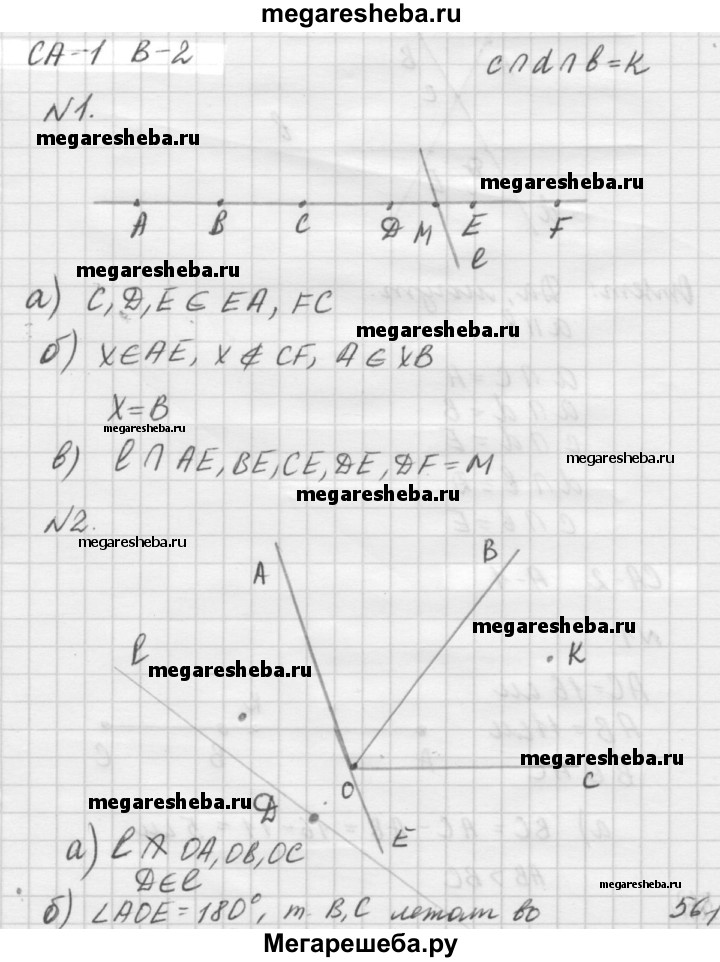 megaresheba.ru
СА-1 В-2
c∩d∩b=K
N1.
megaresheba.ru
megaresheba.ru
A B C D M E F
ℓ
megaresheba.ru
а) C, D, E ∈ EA, FC
megaresheba.ru
б) X∈AE, X∉CF, A∈XB
X=B
megaresheba.ru
в) ℓ∩AE, BE, CE, DE, DF=M
megaresheba.ru
megaresheba.ru
N2.
megaresheba.ru
A B
megaresheba.ru
K
ℓ
megaresheba.ru
megaresheba.ru
O C
megaresheba.ru
D
E
а) ℓ∩̸ OA, OB, OC
D∈ℓ
megaresheba.ru
б) ∠AOE=180°, т. B, C лежат во
561
Мегарешеба.ру